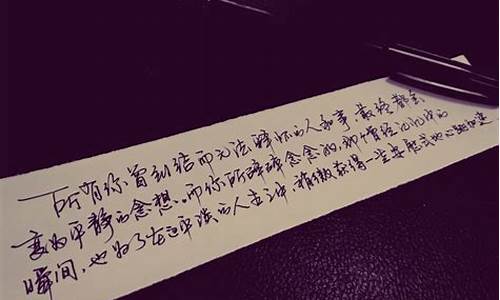 所有你曾纠结而无法释怀的人和事,最终都会
变为平静的念想。而你所碎碎念念的,那个曾经记忆中的
瞬间,也为了在这平淡的人生之中,稍微获得一些